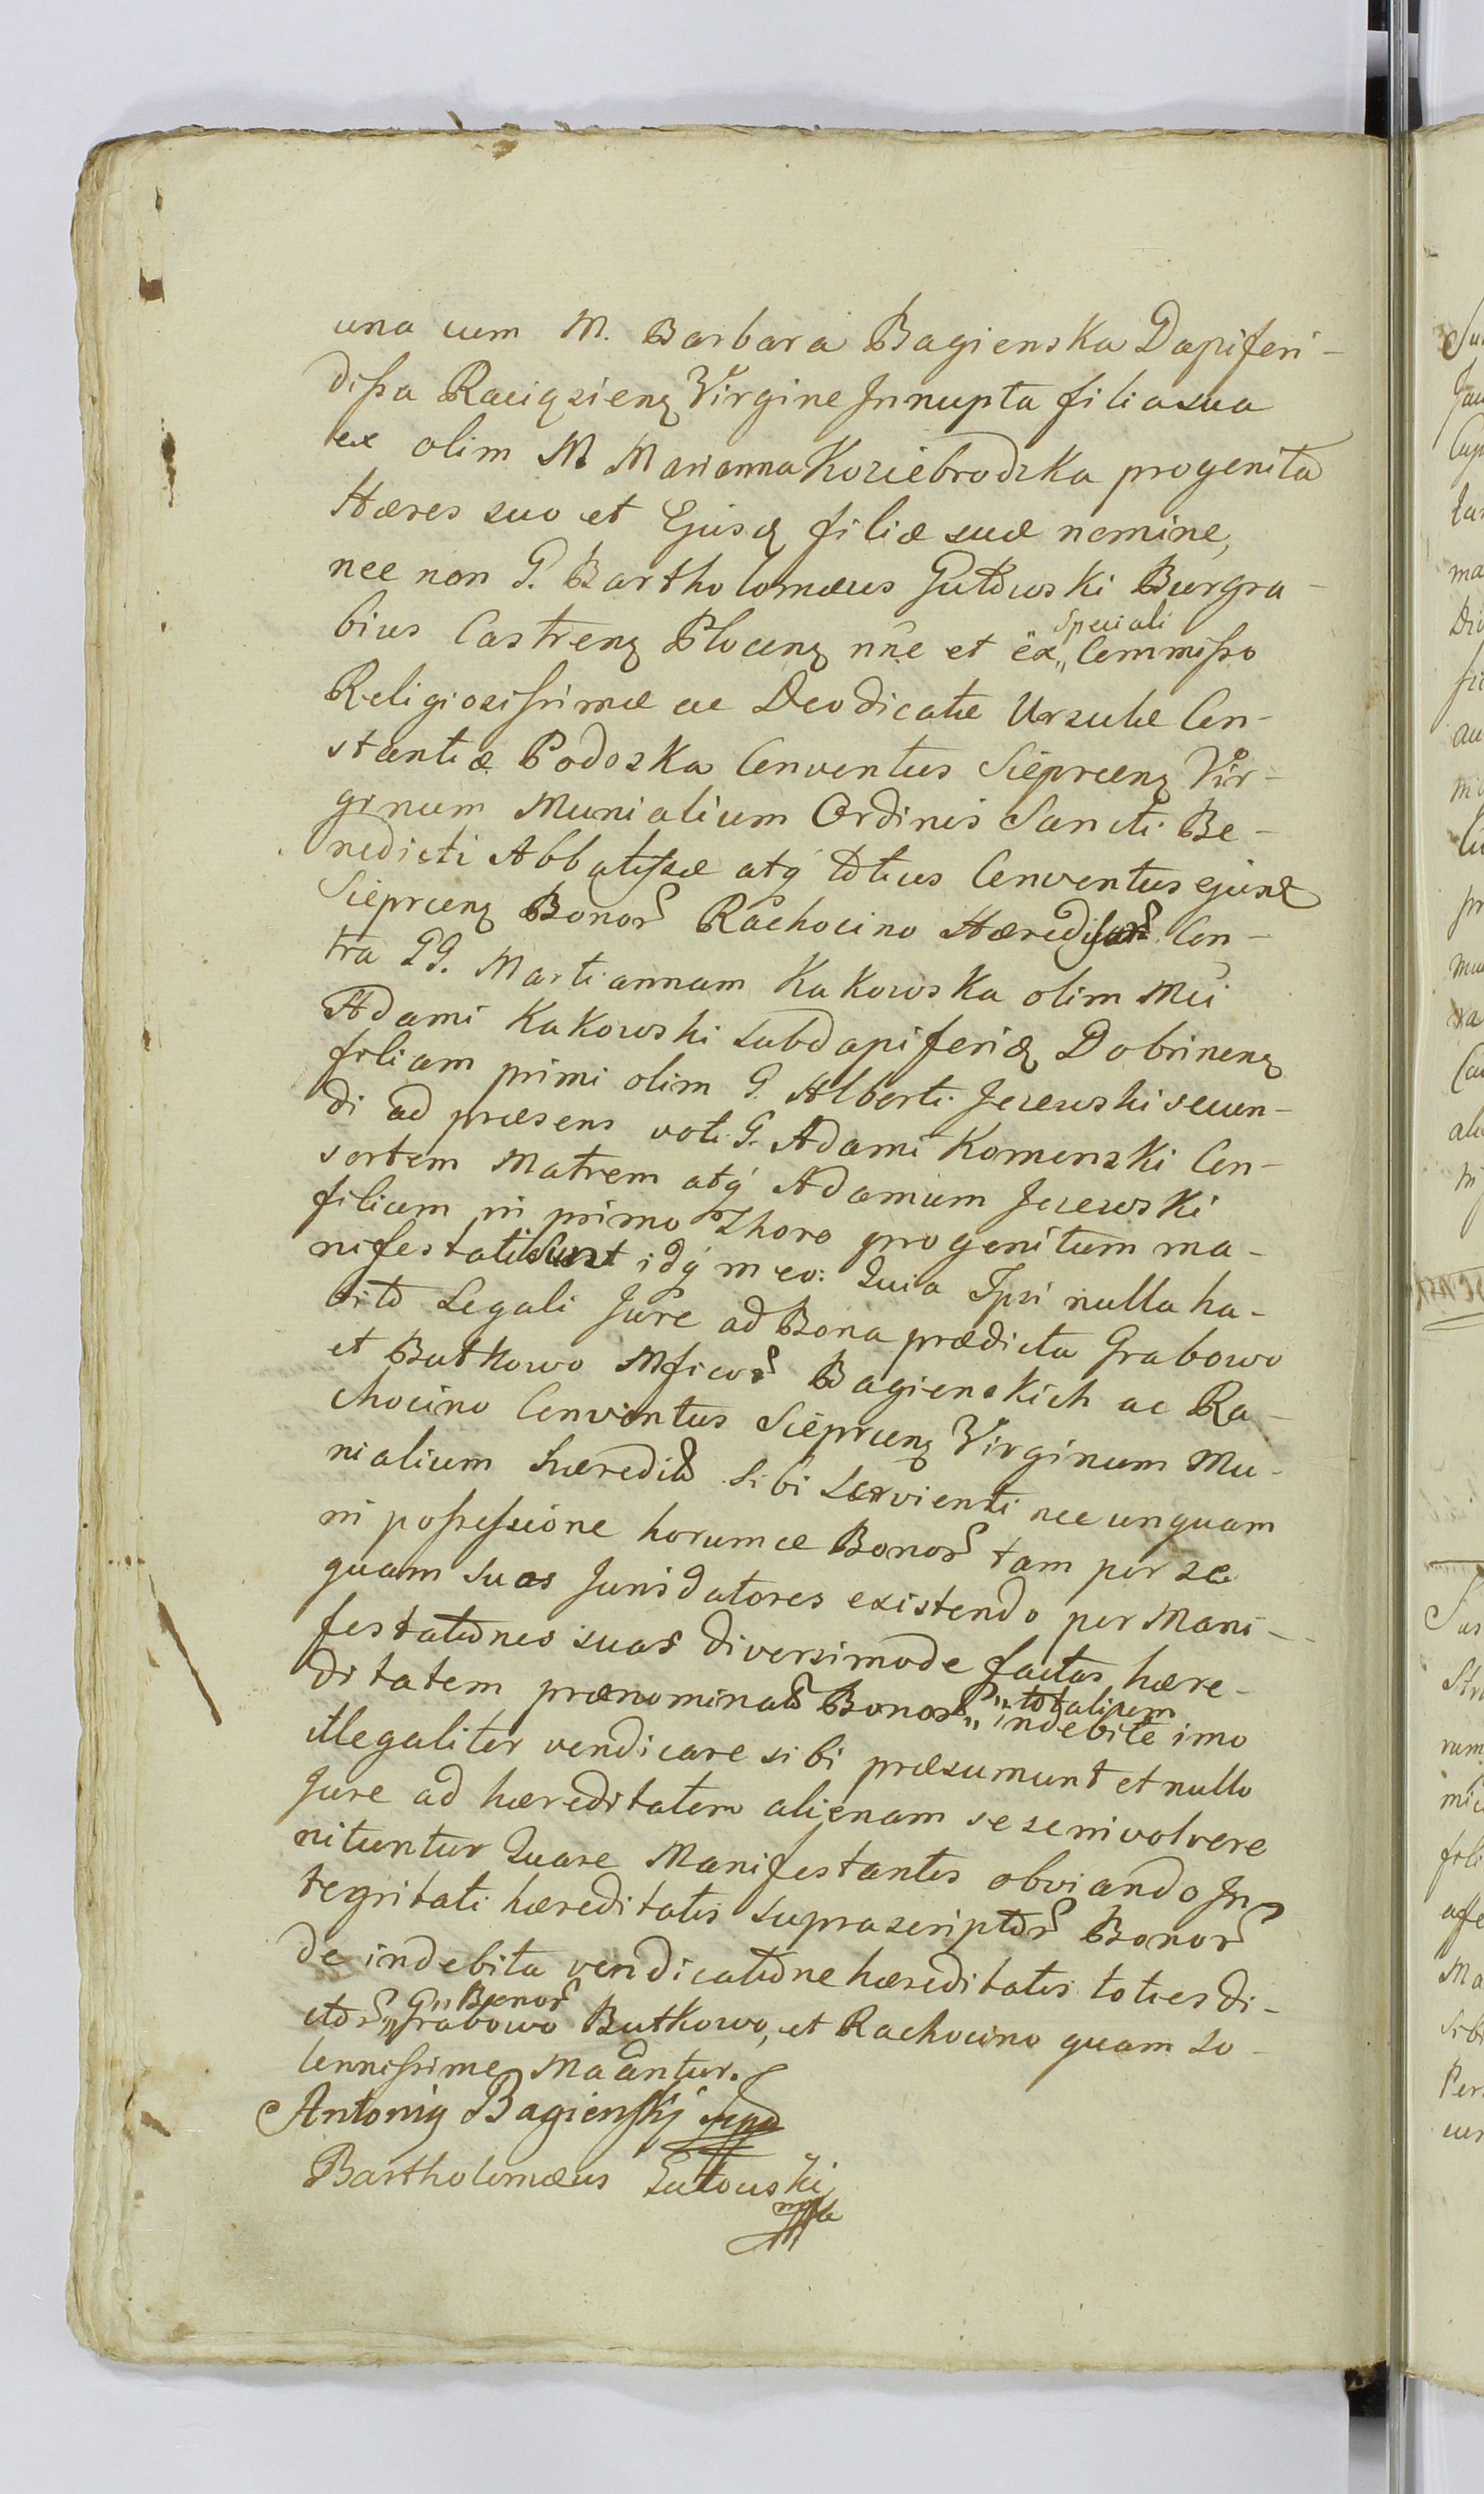 una cum M. Barbara Bagienska Dapiferi-
dißa Raciązienꝫ Virgine Jnnupta filia sua
ex olim M. Marianna Koziebrodzka progenita
Hæres suo et Ejusꝫ filiæ suæ nomine,
nec non G. Bartholomæus Gutowski Burgra-
bius Castrenꝫ Plocenꝫ nñe et ex „ Commißo
Speciali
Religiosißimæ ac Deodicatæ Ursulæ Con-
stantiæ Podoska Conventus Sieprcenꝫ Vir-
ginum Monialium Ordinis Sancti Be-
nedicti Abbatißæ atq́ totius Conventus ejusꝫ
Sieprcenꝫ Bonor Rachocino Hæredi Con-
tra GG. Mariannam Kakowska olim Mci
Adami Kakowski Subdapiferidꝫ Dobrinenꝫ
filiam primi olim G. Alberti Jezewski secun-
di ad præsens voti G. Adami Komenski Con-
sortem Matrem atq́ Adamum Jezewski
filium in primo Thoro progenitum ma-
nifestati sunt idq́ in eo: Quia Ipsi nulla ha-
bito Legali Jure ad Bona prædicta Grabowo
et Butkowo Mficor Bagienskich ac Ra-
chocino Conventus Sieprcenꝫ Virginum Mo-
nialium hæredit sibi Servienti nec unquam
in poßeßione horumce Bonor tam per se
quam suos Jurisdatores existendo per Mani-
festationes suas diversimode factas hære-
ditatem prænominat Bonor „ indebite imo
„ totaliter
illegaliter vendicare sibi præsumunt et nullo
Jure ad hæreditatem alienam sese involvere
nituntur Quare Manifestantes obviando In-
tegritati hæreditatis suprascriptor Bonor
de indebita vendicatione hæreditatis toties di-
ctor „ Grabowo Butkowo, et Rachocino quam so-
„ Bonor
lennißime Maantur.
Antonig Bagienskj
Bartholomæus Gutowski